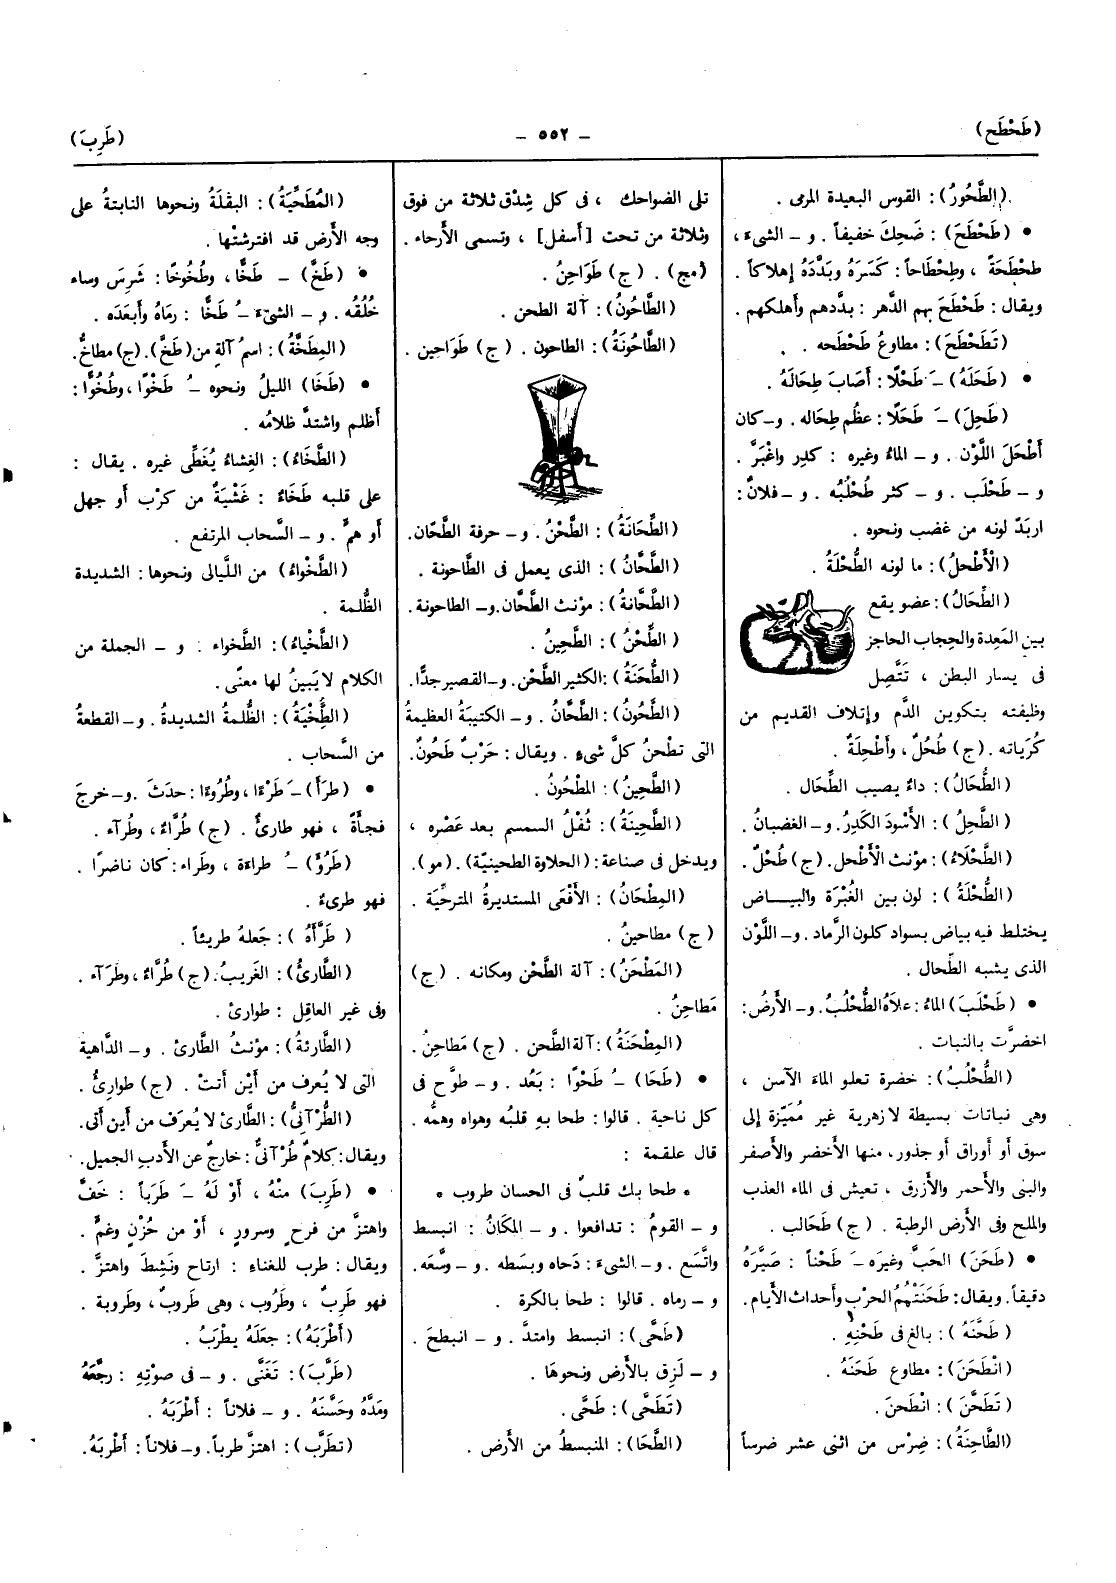 (طَحْطَح)
– ٥٥٢ –
(طَرِبَ)
(الطَّحُورُ): القوس البعيدة المرمى .
• (طَحْطَحَ) : ضَحِكَ خفيفاً . و – الشىءَ ،
طحْطَحَةً ، وطِحْطَاحاً : كَسَرَهُ وبَدَّدَهُ إهلاكاً .
ويقال : طَحْطَحَ بهم الدَّهر : بدَّدهم وأهلكهم .
(تَطَحْطَحَ) : مطاوعُ طَحْطَحه .
• (طَحَلَهُ) –َ طَحْلًا : أَصَابَ طِحَالَهُ .
(طَحِلَ) –َ طَحَلًا : عظُم طِحاله . و – كان
أَطْحَلَ اللَّوْن . و – الماءُ وغيره : كدِر واغْبَرَّ .
و – طَحْلَب . و – كثر طُحْلُبُه . و – فلانٌ :
اربَدّ لونه من غضب ونحوه .
(الْأَطْحلُ) : ما لونه الطُّحْلَةُ .
(الطِّحَالُ) : عضو يقع
بين المَعِدة والحِجاب الحاجز
فى يسار البطن ، تَتَّصِل
وظيفته بتكوين الدَّم وإتلاف القديم من
كُرَياته . (ج) طُحُلٌ ، وأَطْحِلَةٌ .
(الطُّحَالُ) : داءٌ يصيب الطِّحَال .
(الطَّحِلُ) : الأَسْودَ الكَدِرُ . و – الغضبانُ .
(الطَّحْلَاءُ) : مؤنث الْأَطْحل . (ج) طُحْلٌ .
(الطُّحْلَةُ) : لون بين الغُبْرَة والبيـــاض
يختلط فيه بياض بسواد كلون الرَّماد . و – اللَّوْن
الذى يشبه الطِّحال .
• (طَحْلَبَ) الماءُ : علاَهُ الطُّحْلُبُ . و – الأَرضُ :
اخضرَّت بالنبات .
(الطُّحْلُبُ) : خضرة تعلو الماءَ الآسن ،
وهى نباتات بسيطة لا زهرية غير مُمَيّزة إلى
سوق أو أوراق أو جذور ، منها الأَخضر والأَصفر
والبنى والأَحمر والأَزرق ، تعيش فى الماء العذب
والملح وفى الأَرض الرطبة . (ج) طَحَالب .
• (طَحَنَ) الحَبَّ وغيرَه –َ طَحْناً : صَيَّرَهُ
دقيقاً . ويقال : طَحَنَتْهُمُ الحرْب وأَحداث الأَيام .
(طَحَّنَهُ) : بالغ فى طَحْنِهِ .
(انْطَحَنَ) : مطاوع طَحَنَهُ .
(تَطَحَّنَ) : انْطَحنَ .
(الطَّاحِنَةُ) : ضِرْس من اثنى عشر ضرساً
تلى الضواحك ، فى كل شِدْق ثلاثة من فوق
وثلاثة من تحت [أسفل] ، وتسمى الأَرحاء .
(مج) . (ج) طَوَاحِنُ .
(الطَّاحُونُ) : آلة الطحن .
(الطَّاحُونَةُ) : الطاحون . (ج) طَوَاحين .
(الطِّحَانَةُ) : الطَّحْنُ . و – حرفة الطَّحّان .
(الطَّحَّانُ) : الذى يعمل فى الطَّاحونة .
(الطَّحَّانَةُ) : مؤنث الطَّحَّان . و – الطاحونة .
(الطِّحْنُ) : الطَّحِينُ .
(الطُّحَنَةُ) : الكثير الطَّحْن . و – القصير جدًّا .
(الطَّحُونُ) : الطَّحَّانُ . و – الكتيبَةُ العظيمةُ
التى تطْحنُ كلَّ شىءٍ . ويقال : حَرْبٌ طَحُونٌ .
(الطَّحِينُ) : المَطْحُونُ .
(الطَّحِينَةُ) : ثُفْلُ السمسم بعد عَصْره ،
ويدخل فى صناعة : (الحلاوة الطحينيّة) . (مو) .
(المِطْحَانُ) : الأَفْعَى المستديرةُ المترحِّيَة .
(ج) مطاحينُ .
(المَطْحَنُ) : آلة الطَّحْن ومكانه . (ج)
مَطاحِنُ .
(المِطْحَنَةُ) : آلة الطَّحن . (ج) مَطَاحِنُ .
• (طَحَا) –ُ طَحْوًا : بَعُد . و – طوَّح فى
كل ناحية . قالوا : طحا بهِ قلبُه وهواه وهمُّه .
قال علقمة :
* طحا بك قلبٌ فى الحسان طروب *
و – القومُ : تدافعوا . و – المكَانُ : انبسط
واتَّسَع . و – الشىءَ : دَحاه وبسَطه . و – وسَّعَه .
و – رماه . قالوا : طحا بالكرة .
(طَحَّى) : انبسط وامتدَّ . و – انبطحَ .
و – لَزِق بالأَرض ونحوهَا .
(تَطَحَّى) : طَحَّى .
(الطَّحَا) : المنبسطُ من الأَرض .
(المُطَحِّيَةُ) : البقْلَةُ ونحوها النابتةُ على
وجه الأَرض قد افترشتْها .
• (طَخَّ) –ُ طَخًّا ، وطُخُوخًا : شَرِسَ وساء
خُلُقُه . و – الشىْءَ –ُ طَخًّا : رمَاهُ وأَبعَدَه .
(المِطَخَّةُ) : اسمُ آلةٍ من (طَخَّ) . (ج) مطاخُّ .
• (طَخَا) الليلُ ونحوه –ُ طَخْوًا ، وطُخُوًّا :
أظلم واشتدَّ ظلامُه .
(الطَّخَاءُ) : الغِشاءُ يُغَطِّى غيره . يقال :
على قلبه طَخَاءٌ : غَشْيَةٌ من كرْب أَو جهل
أَو همٍّ . و – السَّحاب المرتفع .
(الطَّخْواءُ) من اللَّيالى ونحوها : الشديدة
الظُّلمة .
(الطَّخْياءُ) : الطَّخواء . و – الجملة من
الكلام لا يَبينُ لها معنًى .
(الطُّخْيَةُ) : الظُّلمةُ الشديدةُ . و – القطعةُ
من السَّحاب .
• (طرَأَ) –َ طَرْءًا ، وطُرُوءًا : حدَثَ . و – خرجَ
فجأَةً ، فهو طارئٌ . (ج) طُرَّاءٌ ، وطُرآء .
(طَرُؤَ) –ُ طراءَة ، وطَراء : كان ناضرًا .
فهو طرىءٌ .
(طَرَّأَهُ) : جَعلهُ طريئاً .
(الطَّارئُ) : الغَريبُ . (ج) طُرَّاءٌ ، وطُرَآء .
وفى غير العاقِل : طوارئ .
(الطَّارئةُ) : مؤنثُ الطَّارئ . و – الدَّاهية
التى لا يُعرف من أَيْن أَتتْ . (ج) طوارئُ .
(الطُّرْآنىُّ) : الطَّارئ لا يُعرَف من أَين أَتى .
ويقال : كلامٌ طُرْآنىٌّ : خارجٌ عن الأَدبِ الجميل .
• (طَرِبَ) منْهُ ، أَوْ لَهُ –َ طَرَباً : خَفَّ
واهتزَّ من فرحٍ وسرورٍ ، أَوْ من حُزْنٍ وغمٍّ .
ويقال : طرب للغناءِ : ارتاح ونَشِطَ واهتزَّ .
فهو طَرِبٌ ، وطَرُوب ، وهى طَروبٌ ، وطَروبة .
(أَطْرَبَهُ) : جعلَهُ يطْرَبُ .
(طَرَّبَ) : تَغَنَّى . و – فى صوْتِهِ : رجَّعَهُ
ومَدَّهُ وحَسَّنَهُ . و – فلاناً : أَطْرَبَهُ .
(تطَرَّب) : اهتزَّ طرباً . و – فلاناً : أَطْرَبَهُ .